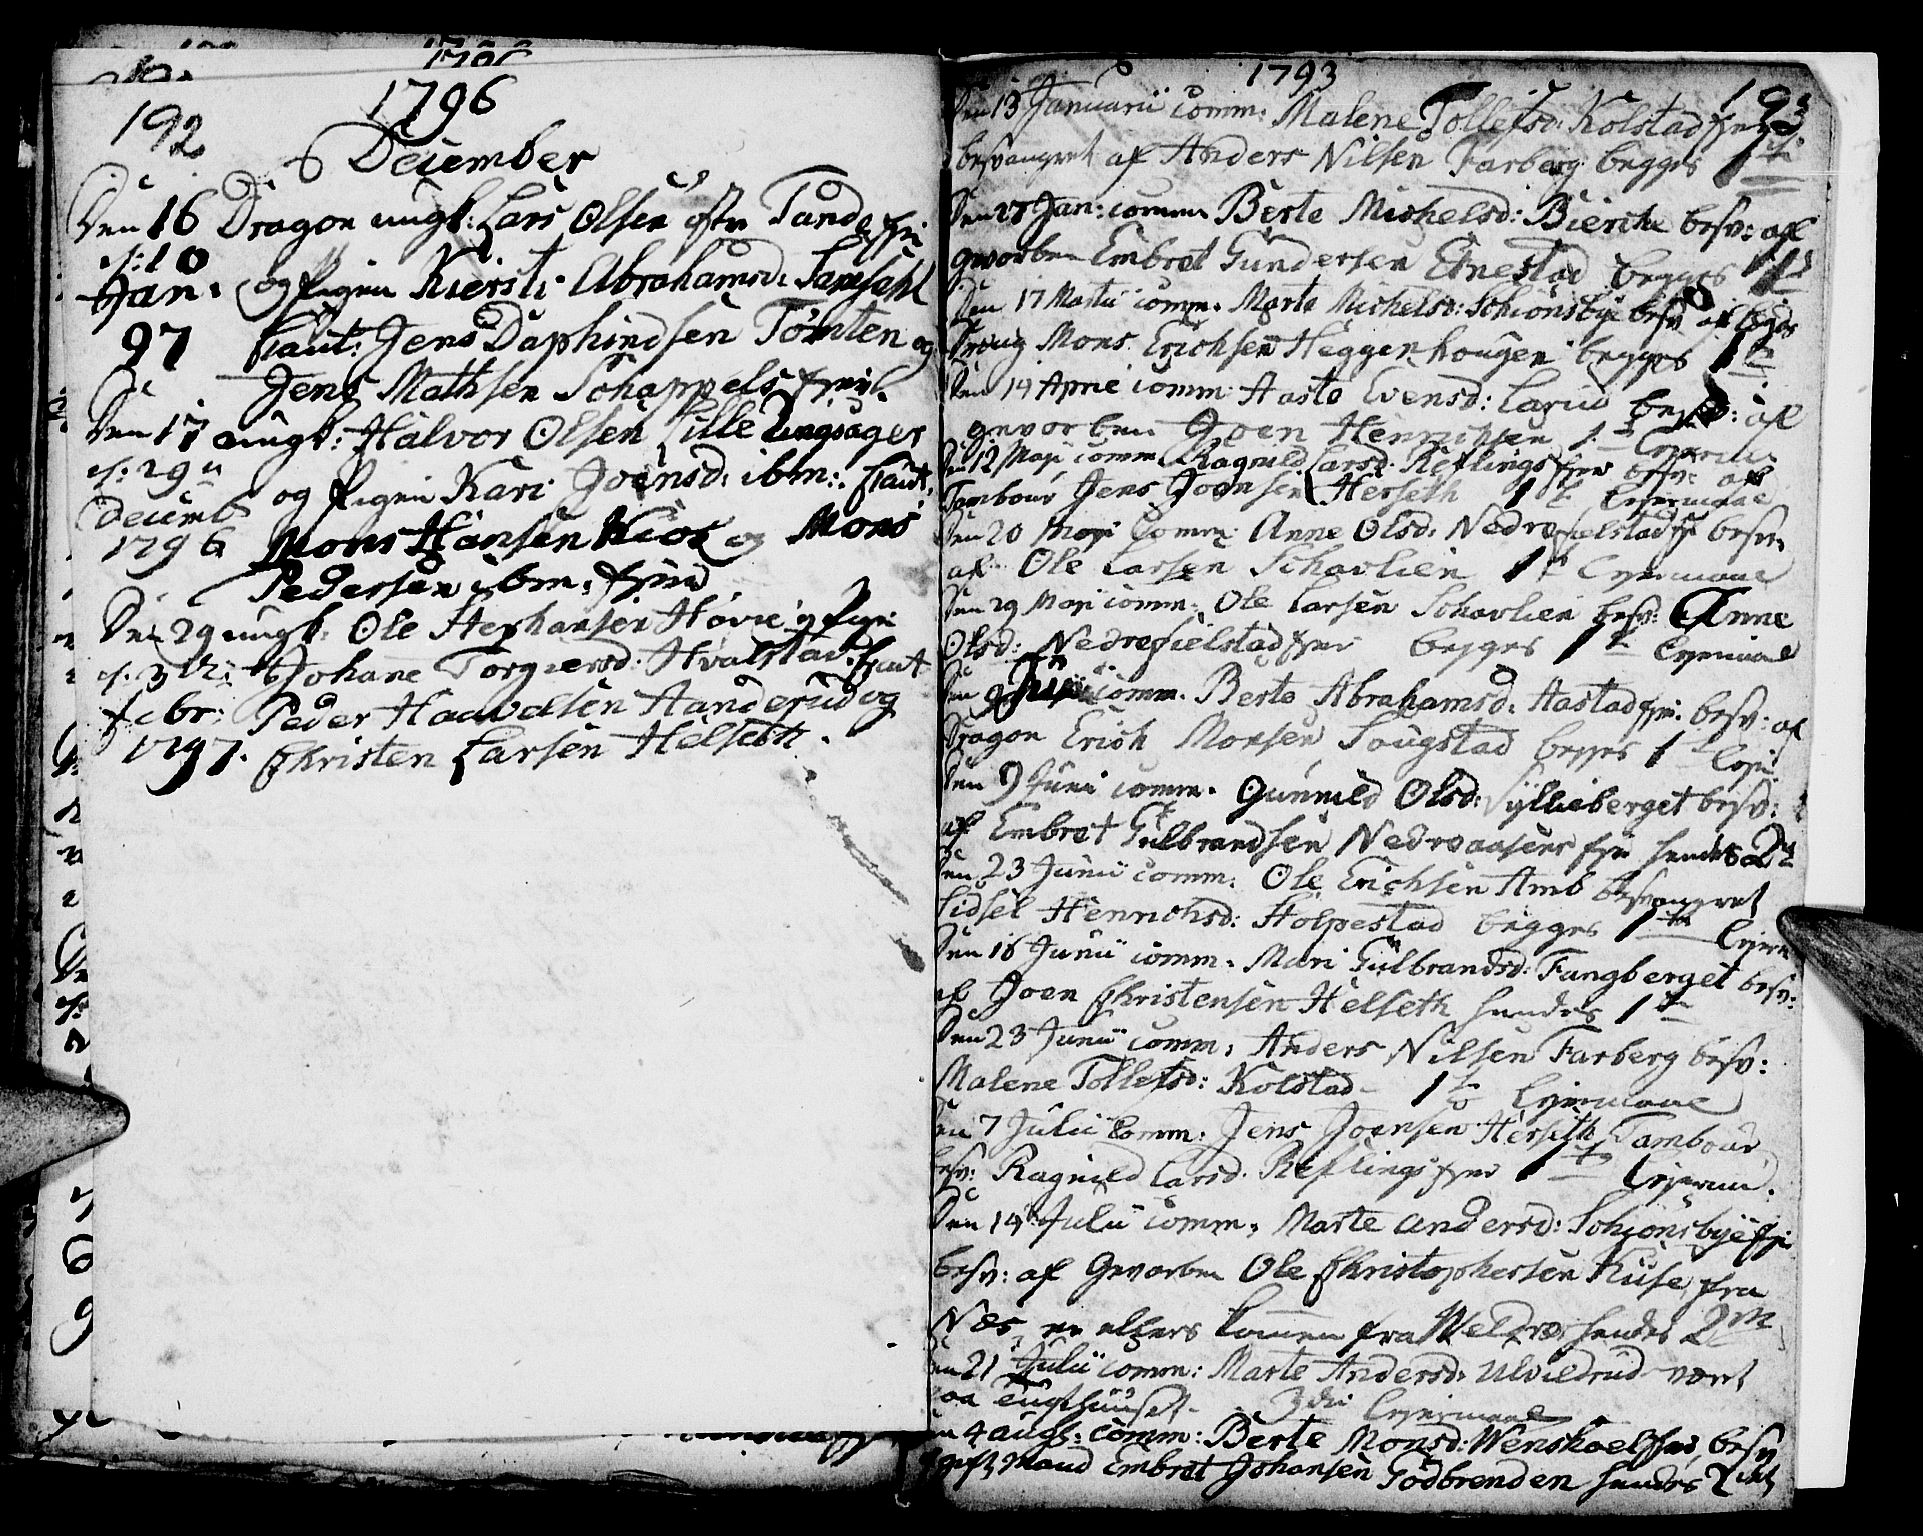 192
1796
December
Den 16 Dragon ungk: Lars Olsen østre Tande
c: 10 og Pigen Kiersti Abrahamsd: Samsahl
Jan:
97 Caut: Jens Daphindsen Tomten og
Jens Mathsen Schappels
Den 17 ungk: Halvor Olsen Lille Ringsager
c: 29
og Pigen Kari Joensd: ibm: Caut:
Decemb
1796 Mons Hansen Kios og Mons
Pedersen ibm:
Den 29 ungk: Ole Stephansen Hovie og Pigen
c: 3 Johane Torgiersd: Hvalstad. Caut
febr: Peder Haavelsen Handerud og
1797. Christen Larsen Helseth.
1793
193
Den 13 Januarii comm: Malene Tollefsd: Kolstad
besvangret af Anders Nilsen Farberg begges 1te
Den 27 Jan: comm: Berte Michelsd: Bierche besv: af
gevorben Embret Gundersen Ernestad begges 1te
Den 17 Martii comm: Marte Michelsd: Schionsbye besv: af
Mons Erichsen Heggenhougen begges 1te
Den 14 April comm: Aaste Evensd: Larud besv: af
gevorben Joen Henrichsen 1te
Den 12 Maji comm: Ragnild Larsd: Reflings besv: af
Tambour Jens Joensen Herseth 1te Lejermaal
Den 20 Maji comm: Anne Olsd: Nedrefielstad besv:
af Ole Larsen Schavlien 1te Lejermaal
Den 29 Maji comm: Ole Larsen Schavlien besv: Anne
Olsd: Nedrefielstad begges 1te Lejermaal
Den 9 Juni comm: Berte Abrahamsd: Aastad besv: af
Dragon Erich Monsen Sougstad begges 1te Leje
Den 9 Juni comm: Gunnild Olsd: Syllieberget besv:
af Embret Gulbrandsen Nedreaasens hendes 2t
Den 23 Junii comm: Ole Erichsen Amb besvangret
Sidsel Henrichsd: Stolpestad begges 1te Lejerm
Den 16 Junii comm: Mari Gulbrandsd: Fangberget besv:
af Joen Christensen Helseth hendes 1te
Den 23 Junii comm: Anders Nilsen Farberg besv:
Malene Tollefsd: Kolstad 1te Lejermaal
Den 7 Julii comm: Jens Joensen Herseth Tambour
besv: Ragnild Larsd: Reflings 1te Lejerm.
Den 14 Julii comm: Marte Andersd: Schionsbye
besv: af Gevorben Ole Christophersen Kuse fra
Næs, er ellers kommen fra Weldre hendes 2
Den 21 Julii comm: Marte Andersd: Ulvildrud været
paa Tugthuuset 3die Lejermaal
Den 4 Augs: comm: Berte Monsd: Wenskoel besv
gift Mand Embret Johansen Godbrenden hendes 2det